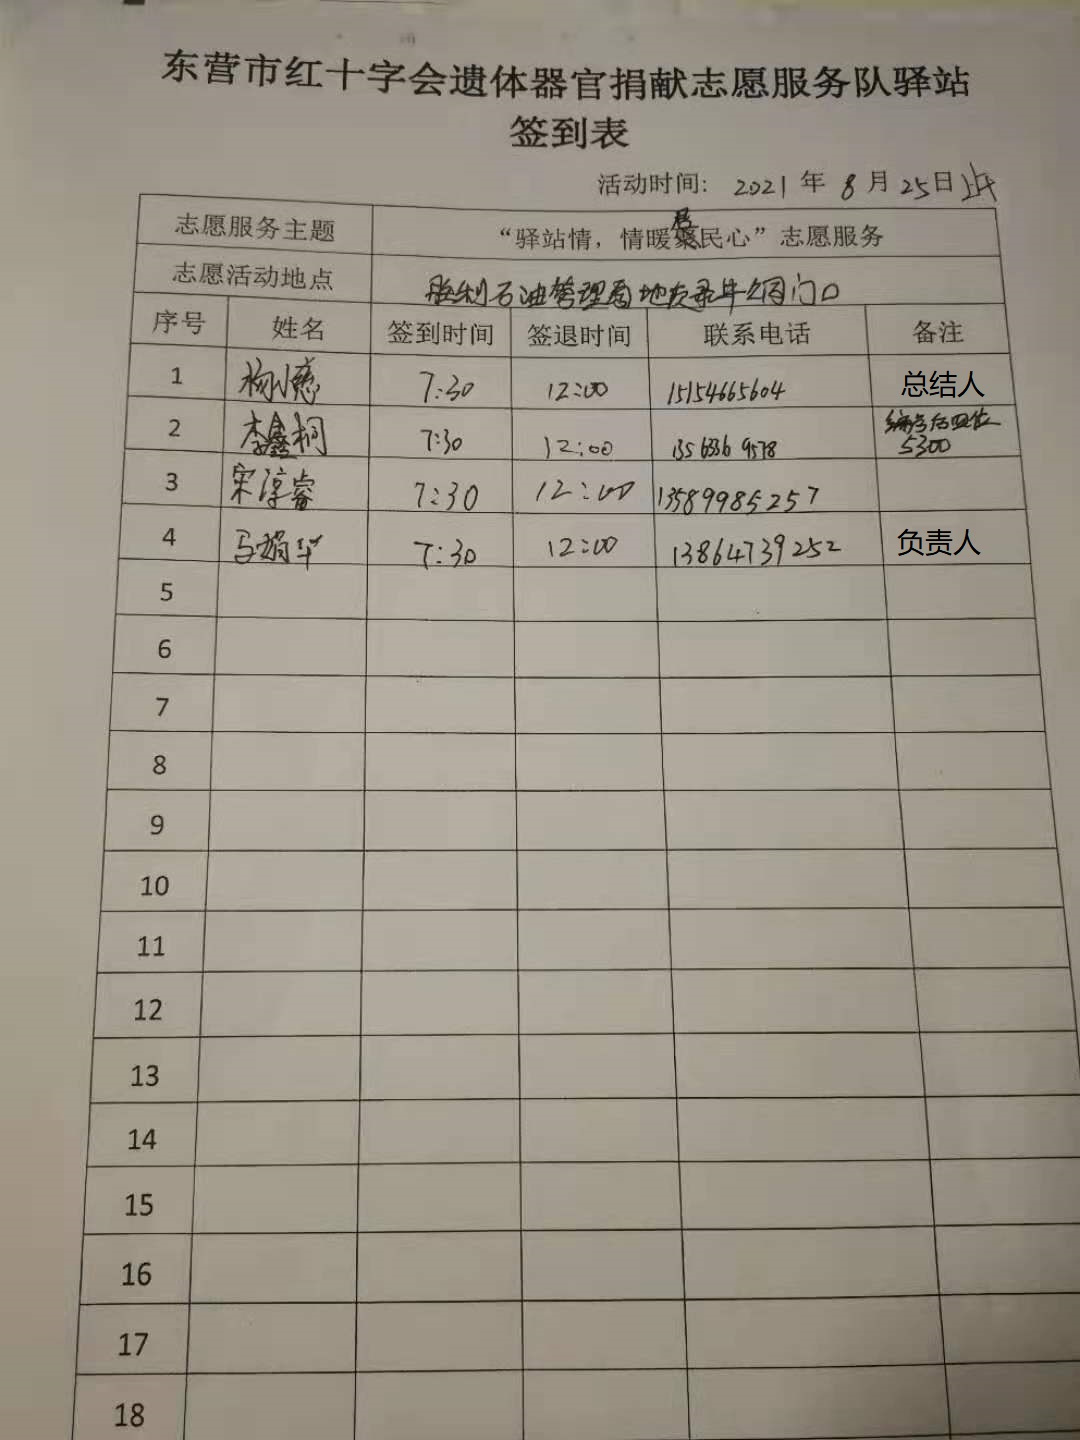 东营市红十字会遗体器官捐献志愿服务队驿站
签到表
活动时间: 2021 年 8 月 25 日 上午
志愿服务主题 “驿站情，情暖居民心”志愿服务
志愿活动地点 胜利石油管理局地 门口
序号 姓名 签到时间 签退时间 联系电话 备注
1 杨小慈 7:30 12:00 15154665604 总结人
2 李鑫桐 7:30 12:00 135 9578 编号后四位
5300
3 宋淳睿 7:30 12:00 13589985257
4 马娟华 7:30 12:00 13864739252 负责人
5
6
7
8
9
10
11
12
13
14
15
16
17
18